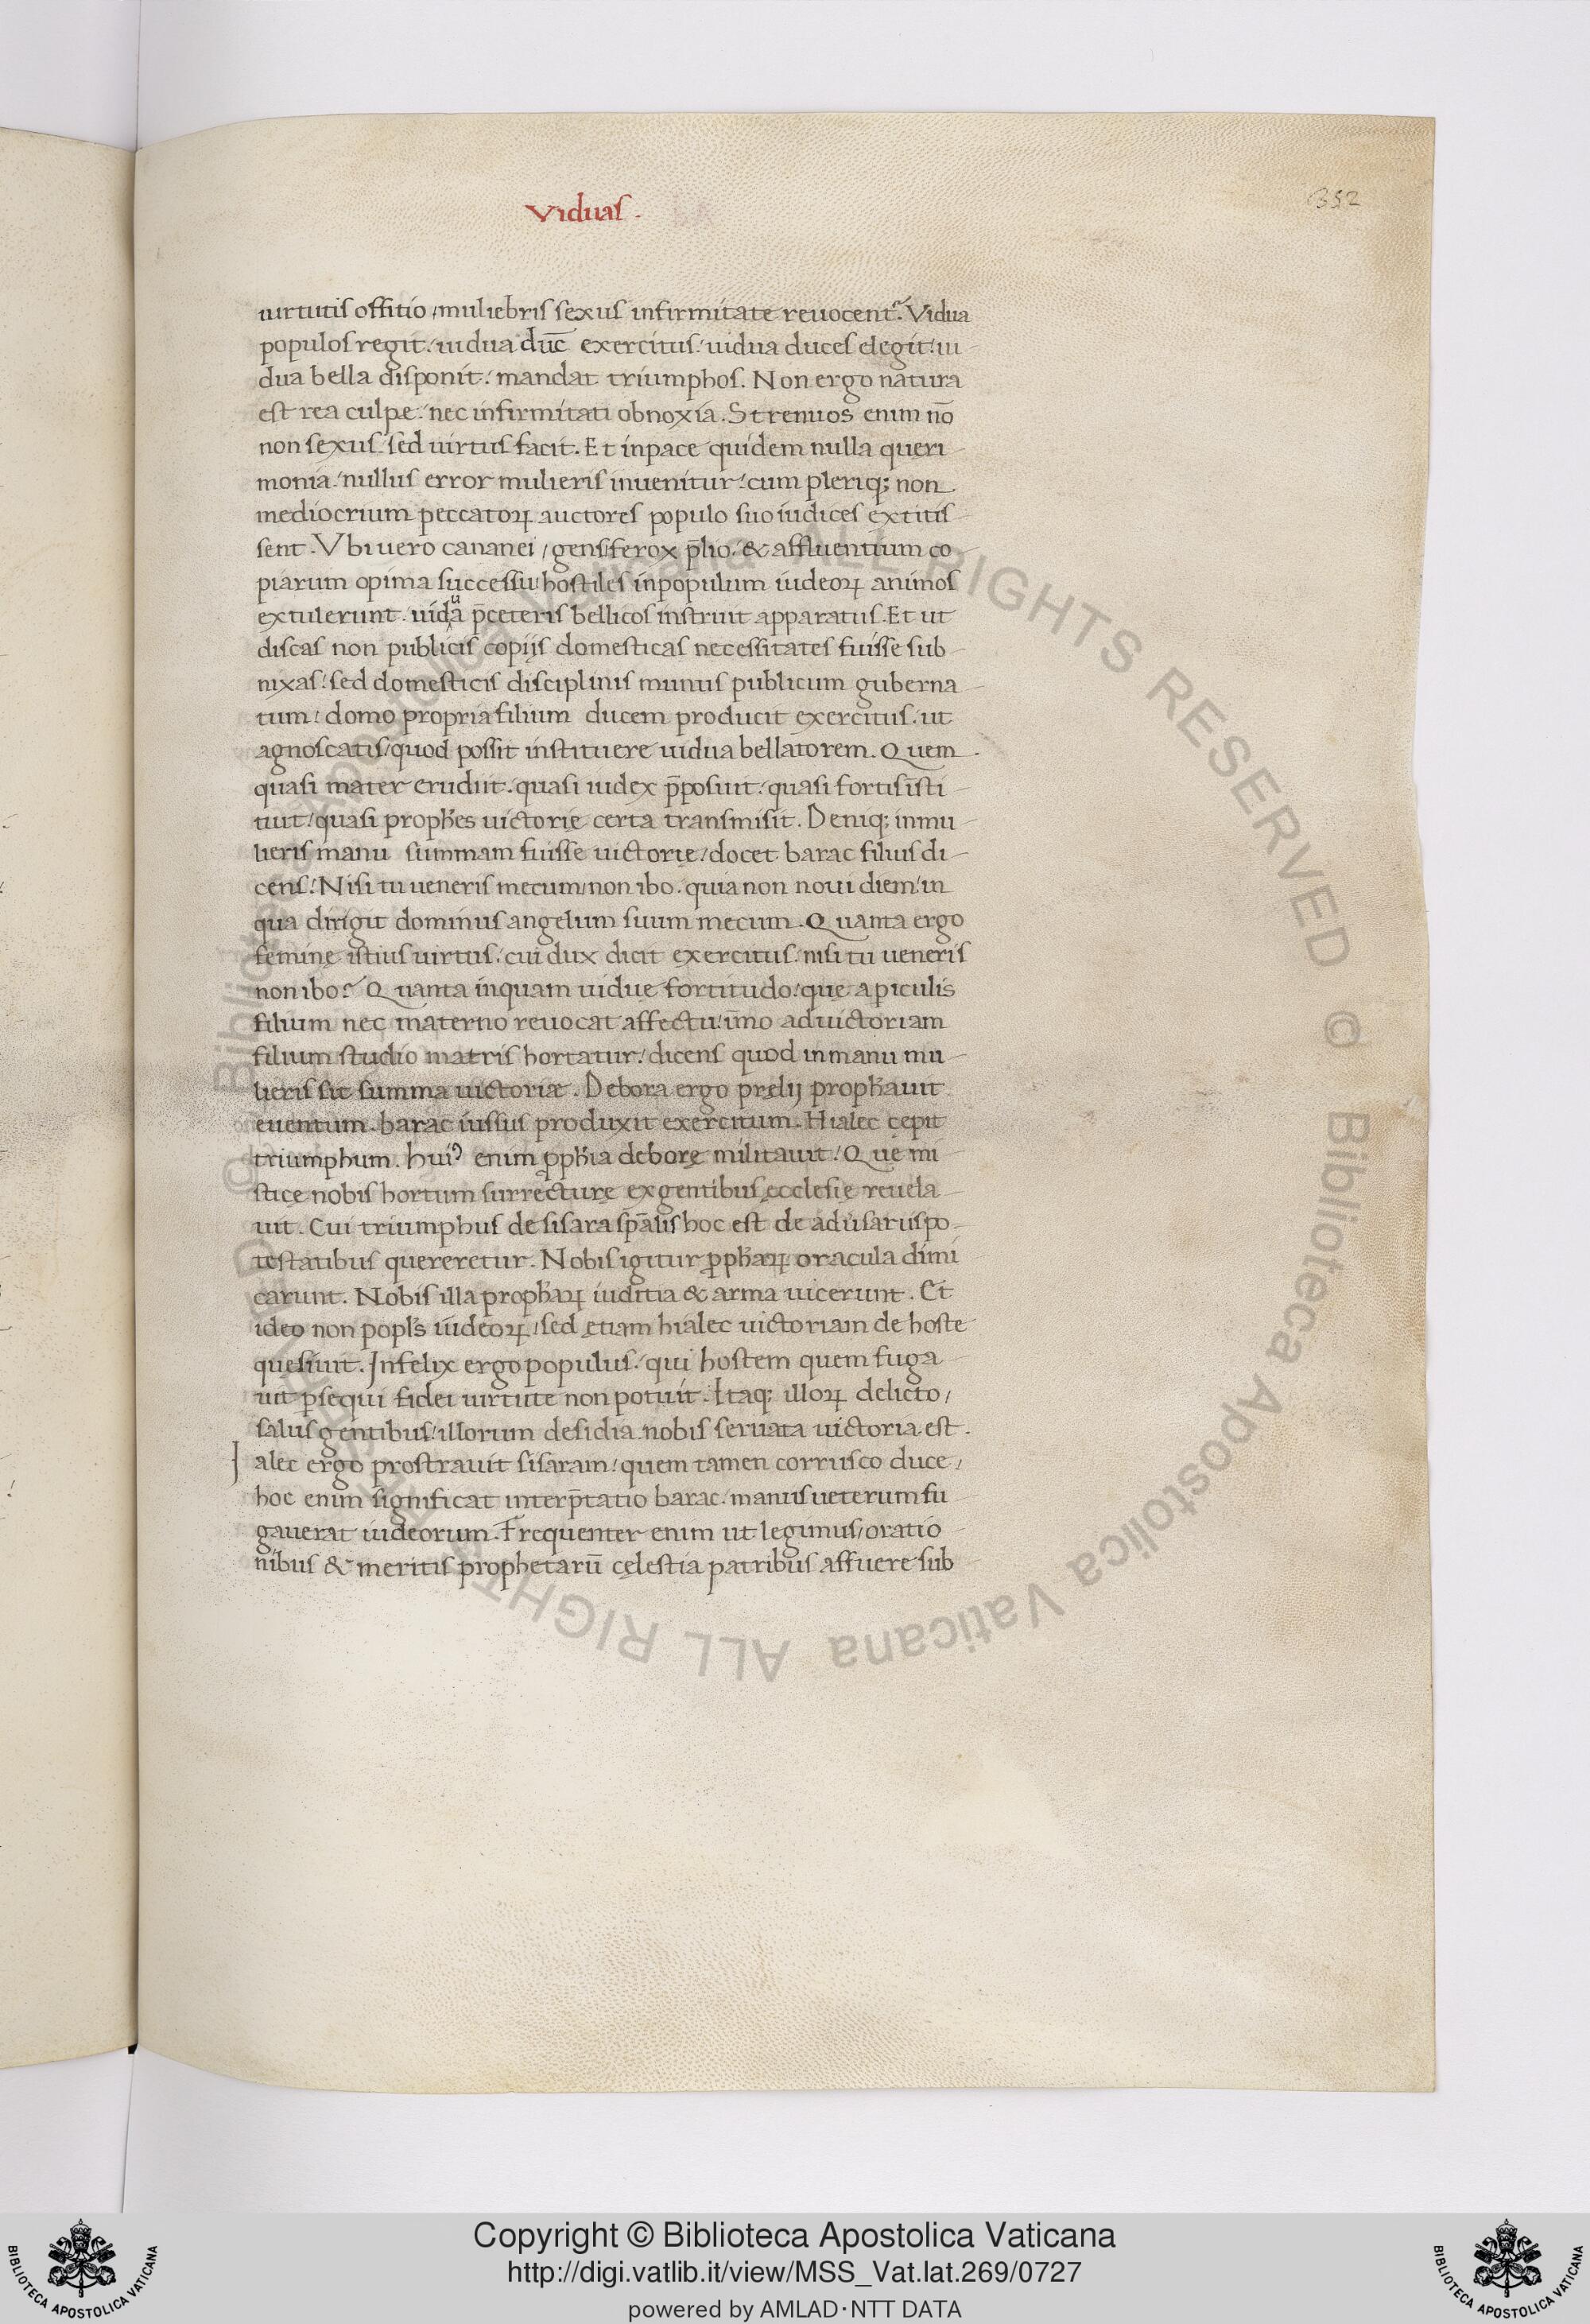 Viduas.
352
uirtutis offitio / muliebris sexus infirmitate reuocent̃. Vidua
populos regit. uidua duc̄ exercitus. uidua duces elegit. ui-
dua bella disponit. mandat triumphos. Non ergo natura
est rea culpe. nec infirmitati obnoxia. Strenuos enim nō
non sexus. sed uirtus facit. Et inpace quidem nulla queri-
monia. nullus error mulieris inuenitur. cum pleriq; non
mediocrium peccatoꝝ auctores populo suo iudices extitis-
sent. Vbi uero cananei / gens ferox p̄lio. & affluentium co-
piarum opima successu hostiles inpopulum iudeoꝝ animos
extulerunt. uidua p̄ceteris bellicos instruit apparatus. Et ut
discas non publicis copijs domesticas necessitates fuisse sub-
nixas. sed domesticis disciplinis munus publicum guberna-
tum. domo propria filium ducem producit exercitus. ut
agnoscatis / quod possit instituere uidua bellatorem. Quem
quasi mater erudiit. quasi iudex p̄posuit. quasi fortis īsti-
tuit / quasi proph̄es uictorię certa transmisit. Deniq; inmu-
lieris manu summam fuisse uictorię / docet barac filius di-
cens. Nisi tu ueneris mecum / non ibo. quia non noui diem / in
qua dirigit dominus angelum suum mecum. Quanta ergo
feminę istius uirtus. cui dux dicit exercitus. nisi tu ueneris
non ibo? Quanta inquam uidue fortitudo. que a ꝑiculis
filium nec materno reuocat affectu. īmo aduictoriam
filium studio matris hortatur. dicens quod inmanu mu-
lieris sit summa uictoriæ. Debora ergo prelij proph̄auit
euentum. barac iussus produxit exercitum. Hialec cepit
triumphum. huiꝰ enim ꝓph̄ia deborę militauit. Quę mi-
sticę nobis hortum surrecturę exgentibus ecclesię reuela-
uit. Cui triumphus de sisara sp̄alis hoc est de aduersariis po-
testatibus quereretur. Nobis igitur ꝓph̄aꝝ oracula dimi-
carunt. Nobis illa proph̄aꝝ iuditia & arma uicerunt. Et
ideo non popl̄s iudeoꝝ / sed etiam hialec uictoriam de hoste
quesiuit. Infelix ergo populus. qui hostem quem fuga-
uit ꝑsequi fidei uirtute non potuit. Itaq; illoꝝ delicto /
salus gentibus / illorum desidia nobis seruata uictoria est.
Ialec ergo prostrauit sisaram / quem tamen corrusco duce /
hoc enim significat interp̄tatio barac. manus ueterum fu-
gauerat iudeorum. Frequenter enim ut legimus / oratio-
nibus & meritis prophetarū cęlestia patribus affuere sub-
Copyright © Biblioteca Apostolica Vaticana
http://digi.vatlib.it/view/MSS_Vat.lat.269/0727
powered by AMLAD·NTT DATA